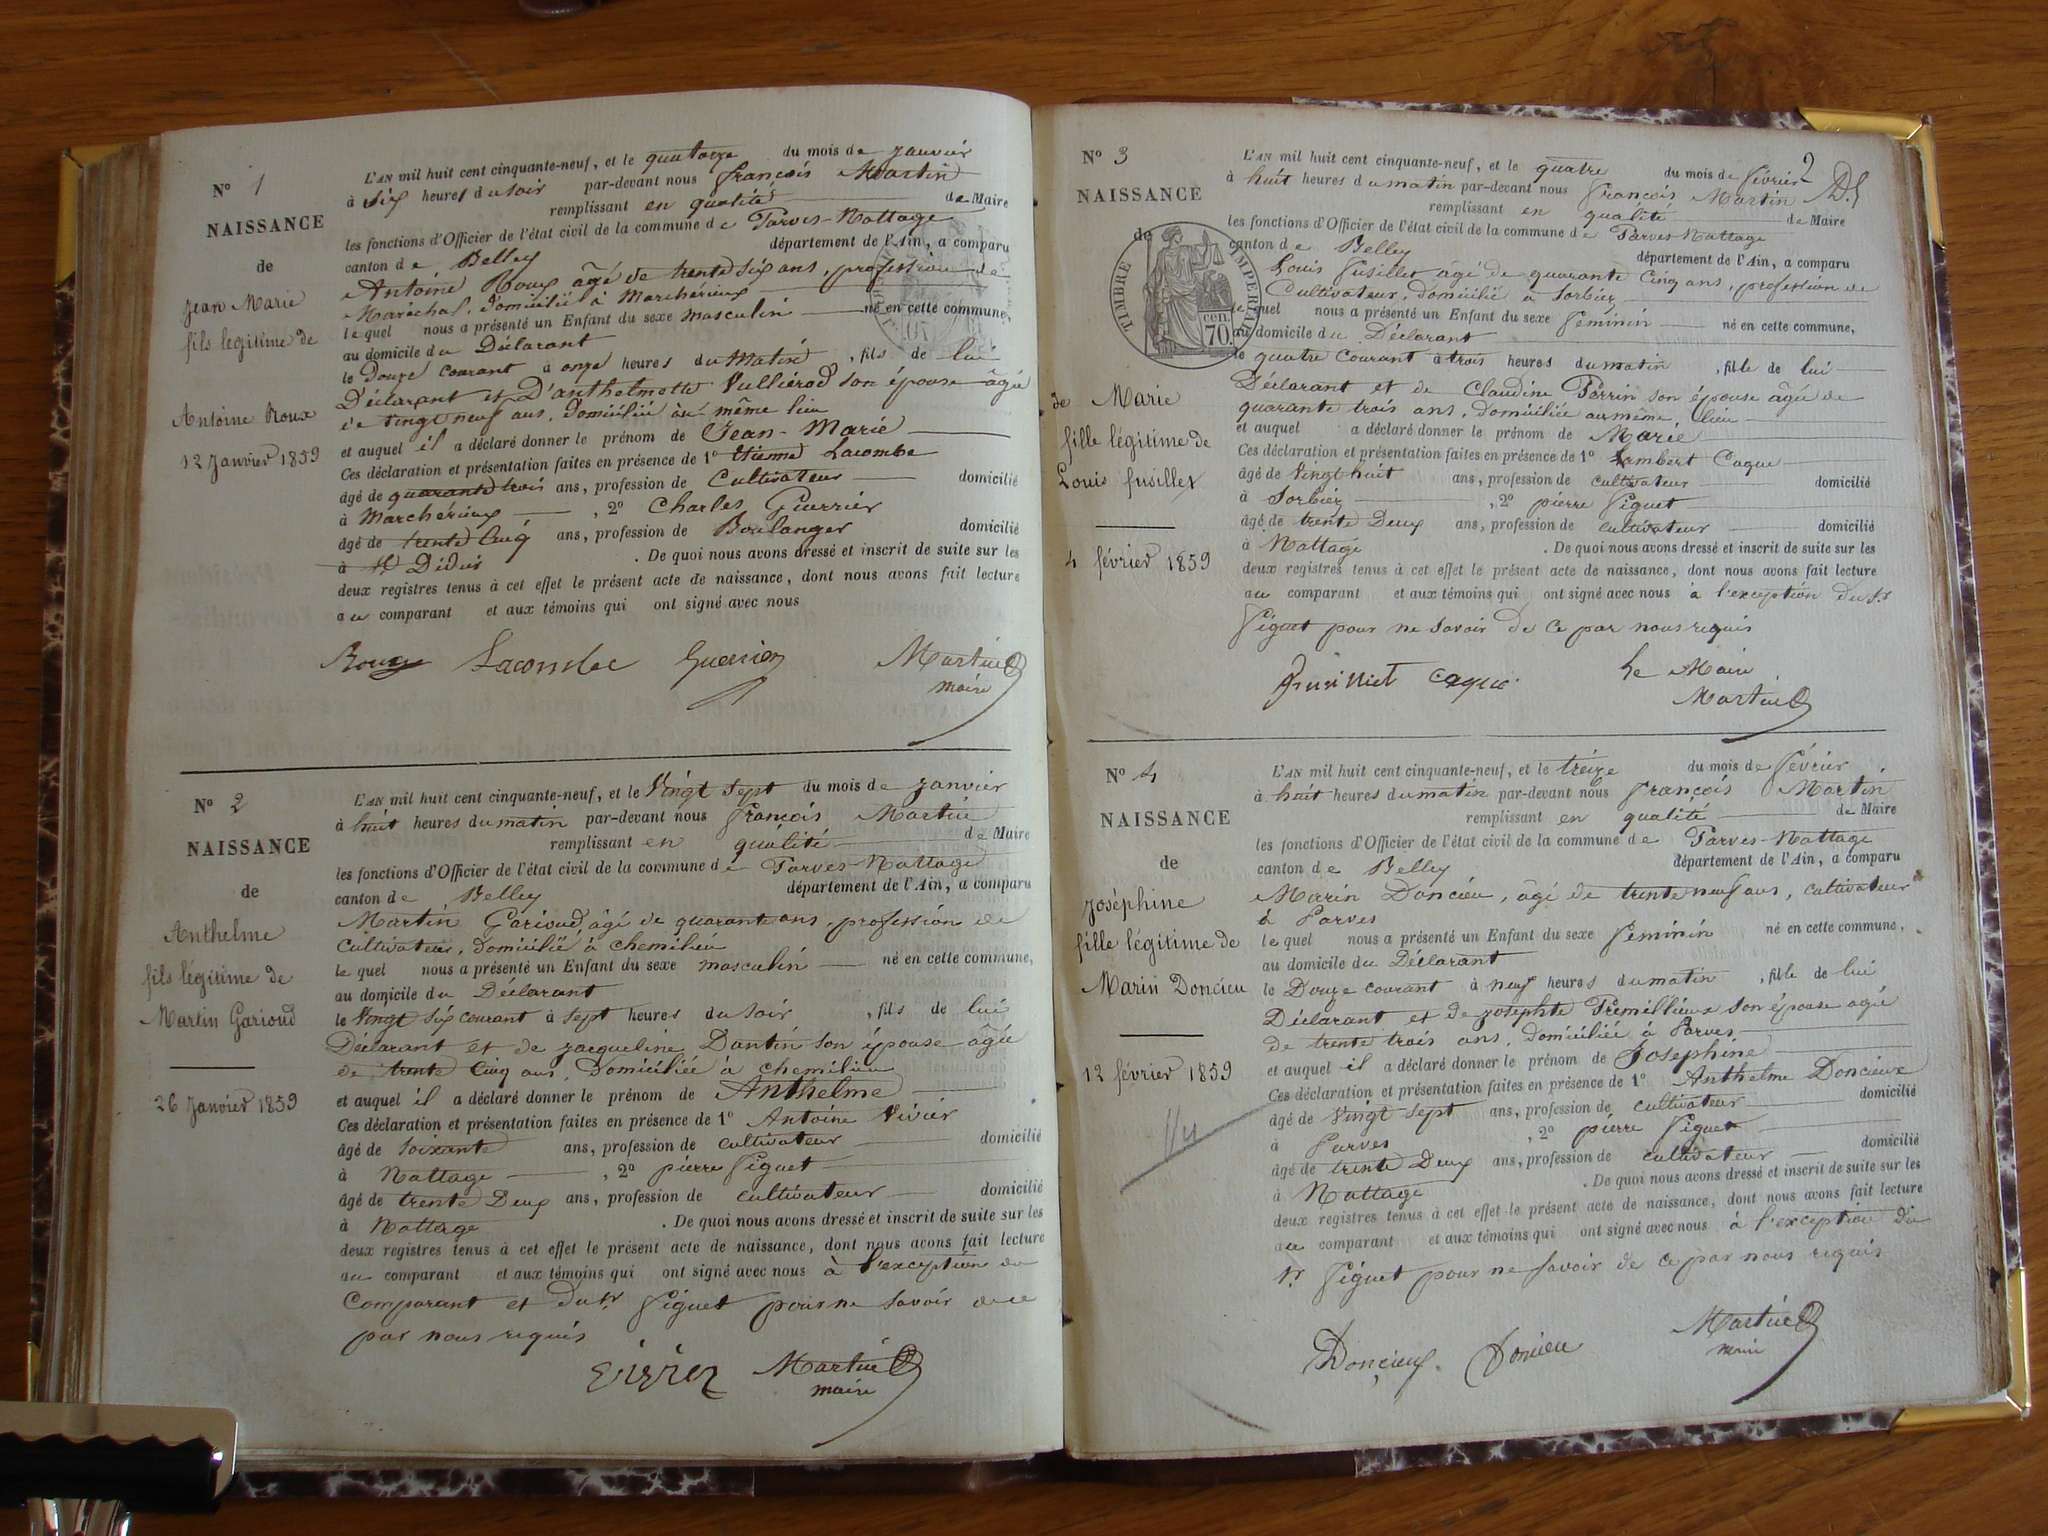 N° 1
NAISSANCE
de
Jean Marie
fils legitime de
Antoine Roux
12 Janvier 1859
L'AN mil huit cent cinquante-neuf, et le quatorze du mois de Janvier
à six heures du soir par-devant nous françois Martin
remplissant en qualité de Maire
les fonctions d'Officier de l'état civil de la commune de Parves-Nattage
canton de Belley département de l'Ain, a comparu
Antoine Roux âgé de trente six ans, profession de
Maréchal, domicilié à Marchérieux
lequel nous a présenté un Enfant du sexe masculin né en cette commune,
au domicile du Déclarant
le Douze courant à onze heures du Matin, fils de lui
Déclarant et D'anthelmette Vulliérod son épouse âgée
de vingt neuf ans, domiciliée au même lieu
et auquel il a déclaré donner le prénom de Jean-Marie
Ces déclaration et présentation faites en présence de 1° étienne Lacombe
âgé de quarante trois ans, profession de Cultivateur domicilié
à Marchérieux, 2° Charles Guerrier
âgé de trente Cinq ans, profession de Boulanger domicilié
à St Didier. De quoi nous avons dressé et inscrit de suite sur les
deux registres tenus à cet effet le présent acte de naissance, dont nous avons fait lecture
au comparant et aux témoins qui ont signé avec nous
Roux Lacombe Guerrier Martin
maire
N° 2
NAISSANCE
de
Anthelme
fils légitime de
Martin Garioud
26 Janvier 1859
L'AN mil huit cent cinquante-neuf, et le Vingt sept du mois de Janvier
à huit heures du matin par-devant nous françois Martin
remplissant en qualité de Maire
les fonctions d'Officier de l'état civil de la commune de Parves-Nattage
canton de Belley département de l'Ain, a comparu
Martin Garioud, âgé de quarante ans, profession de
Cultivateur, domicilié à chemilieu
lequel nous a présenté un Enfant du sexe masculin né en cette commune,
au domicile du Déclarant
le Vingt six courant à sept heures du soir, fils de lui
Déclarant et de Jacqueline Dantin son épouse âgée
de trente Cinq ans, Domiciliée à chemilieu
et auquel il a déclaré donner le prénom de Anthelme
Ces déclaration et présentation faites en présence de 1° Antoine Vivier
âgé de soixante ans, profession de cultivateur domicilié
à Nattage, 2° pierre Piguet
âgé de trente Deux ans, profession de cultivateur domicilié
à Nattage. De quoi nous avons dressé et inscrit de suite sur les
deux registres tenus à cet effet le présent acte de naissance, dont nous avons fait lecture
au comparant et aux témoins qui ont signé avec nous à l'exception du
Comparant et du Sr Piguet pour ne savoir de ce
par nous requis
Martin
maire
2
N° 3
NAISSANCE
de
TIMBRE IMPERIAL
70 cen.
de Marie
fille légitime de
Louis fusillet
4 février 1859
L'AN mil huit cent cinquante-neuf, et le quatre du mois de février
à huit heures du matin par-devant nous françois Martin
remplissant en qualité de Maire
les fonctions d'Officier de l'état civil de la commune de Parves-Nattage
canton de Belley département de l'Ain, a comparu
Louis fusillet âgé de quarante Cinq ans, profession de
Cultivateur, domicilié à Sorbier
lequel nous a présenté un Enfant du sexe féminin né en cette commune,
au domicile du Déclarant
le quatre courant à trois heures du matin, fille de lui
Déclarant et de Claudine Perrin son épouse âgée de
quarante trois ans, domiciliée au même lieu
et auquel a déclaré donner le prénom de Marie
Ces déclaration et présentation faites en présence de 1° Lambert Caque
âgé de Vingt huit ans, profession de cultivateur domicilié
à Sorbier, 2° pierre Piguet
âgé de trente Deux ans, profession de cultivateur domicilié
à Nattage. De quoi nous avons dressé et inscrit de suite sur les
deux registres tenus à cet effet le présent acte de naissance, dont nous avons fait lecture
au comparant et aux témoins qui ont signé avec nous à l'exception du Sr
Piguet pour ne savoir de ce par nous requis
fusilliet caque Le Maire
Martin
N° 4
NAISSANCE
de
Joséphine
fille légitime de
Marin Doncieu
12 février 1859
L'AN mil huit cent cinquante-neuf, et le treize du mois de février
à huit heures du matin par-devant nous françois Martin
remplissant en qualité de Maire
les fonctions d'Officier de l'état civil de la commune de Parves-Nattage
canton de Belley département de l'Ain, a comparu
Marin Doncieu, âgé de trente neuf ans, cultivateur
à Parves
lequel nous a présenté un Enfant du sexe féminin né en cette commune,
au domicile du Déclarant
le Douze courant à neuf heures du matin, fille de lui
Déclarant et de Josephte Trémillieux son épouse âgée
de trente trois ans, domiciliée à Parves
et auquel il a déclaré donner le prénom de Josephine
Ces déclaration et présentation faites en présence de 1° Anthelme Doncieux
âgé de Vingt Sept ans, profession de cultivateur domicilié
à Parves, 2° pierre Piguet
âgé de trente Deux ans, profession de cultivateur domicilié
à Nattage. De quoi nous avons dressé et inscrit de suite sur les
deux registres tenus à cet effet le présent acte de naissance, dont nous avons fait lecture
au comparant et aux témoins qui ont signé avec nous à l'exception du
Sr Piguet pour ne savoir de ce par nous requis
Doncieux Doncieu Martin
maire